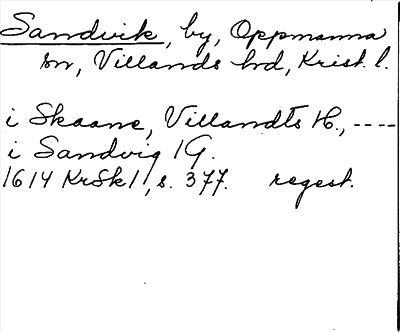 Sandvik, by, Oppmanna
sn, Villands hd, Krist. l.
i Skaane, Villandts H., ----
i Sandvig 1 G.
1614 KrSk 11, s. 377. regest.